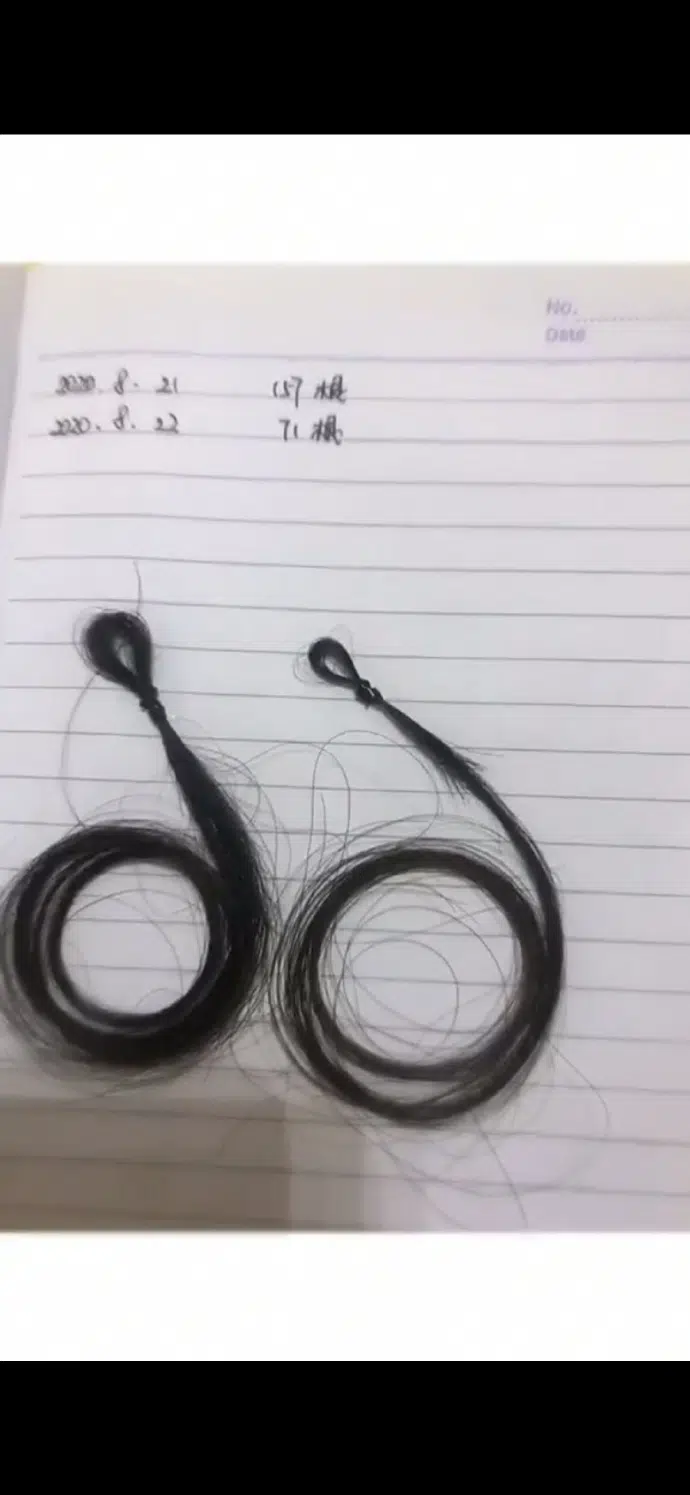 No.
Date
2020.8.21 157根
2020.8.22 71根